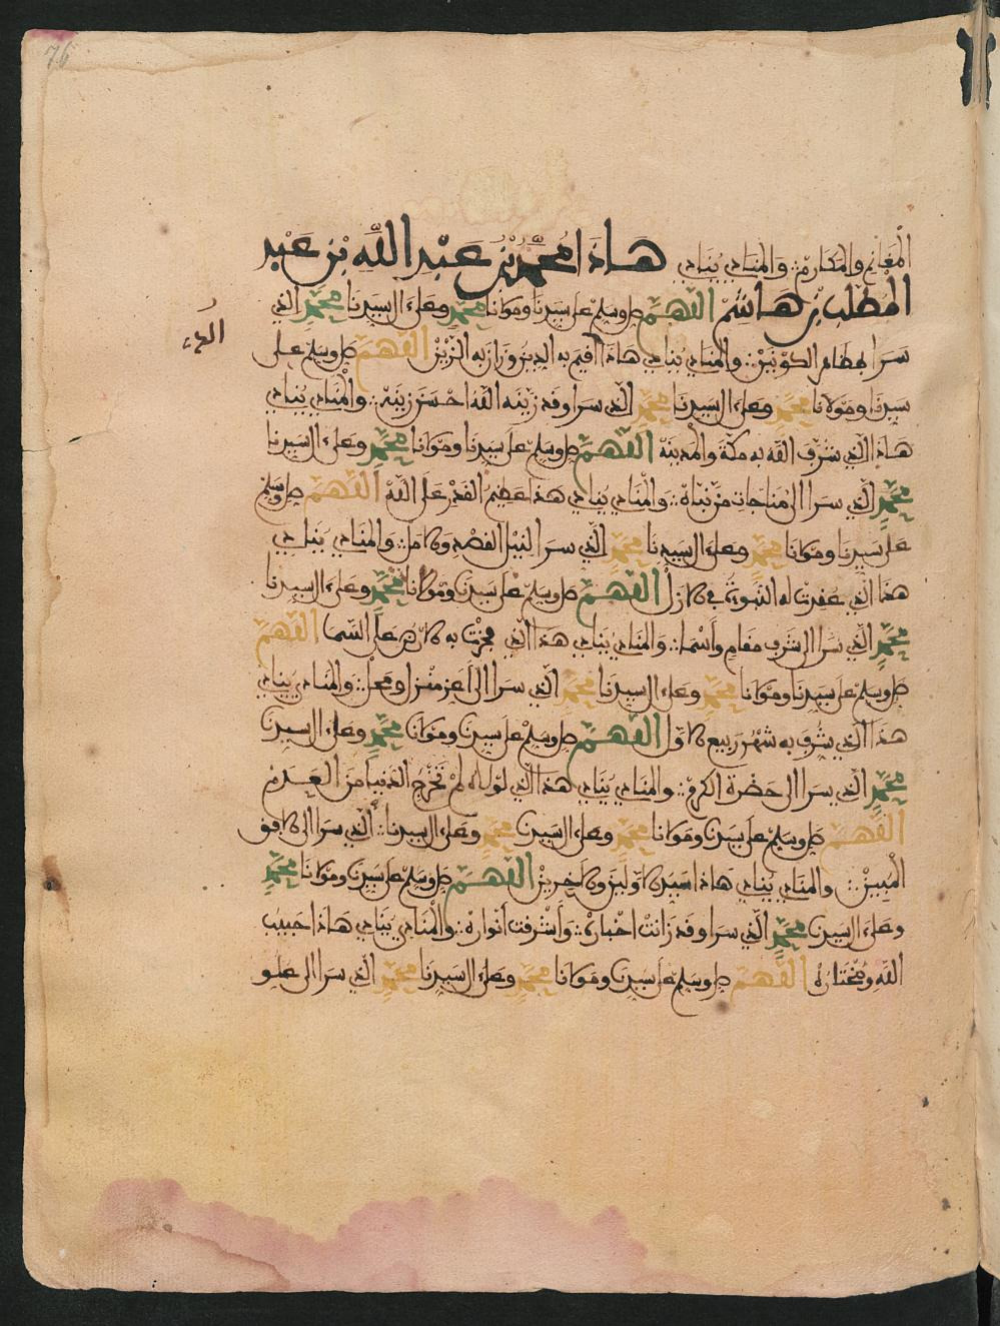 76
المغانم والمكارم والمنادي ينادي هاذا محمد بن عبد الله بن عبد
المطلب بن هاشم اللهم صل وسلم على سيدنا ومولانا محمد وعلى ءال سيدنا محمد الذي
سرا والمنادي ينادي هاذا أقيم به الدين وزان به الزين اللهم صل وسلم على
سيدنا ومولانا محمد وعلى ءال سيدنا محمد الذي سرا وقد زينه الله احسن زينة والمنادي ينادي
هاذا الذي شرف الله به مكة والمدينة اللهم صل وسلم على سيدنا ومولانا محمد وعلى ءال سيدنا
محمد الذي سرا الى مناجات والمنادي ينادي هذا عظيم القدر على الله اللهم صل وسلم
على سيدنا ومولانا محمد وعلى ءال سيدنا محمد الذي سرا لنيل القصد والمنادي ينادي
هذا الذي عقدت له النبوة في الازل اللهم صل وسلم على سيدنا ومولانا محمد وعلى ءال سيدنا
محمد الذي سرا الى شرف مقام وأسما والمنادي ينادي هذا الذي به الارض على السما اللهم
صل وسلم على سيدنا ومولانا محمد وعلى ءال سيدنا محمد الذي سرا الى أعز منزل ومحل والمنادي ينادي
هذا الذي شرف به شهر ربيع الاول اللهم صل وسلم على سيدنا ومولانا محمد وعلى ءال سيدنا
محمد الذي سرا الى حضرة الكرم والمنادي ينادي هذا الذي لولاه لم تخرج الدنيا من العدم
اللهم صل وسلم على سيدنا ومولانا محمد وعلى ءال سيدنا محمد وعلى ءال سيدنا الذي سرا الى الافق
المبين والمنادي ينادي هاذا سيد الاولين والاخرين اللهم صل وسلم على سيدنا ومولانا محمد
وعلى ءال سيدنا محمد الذي سرا وقد زانت اخباره وأشرفت أنواره والمنادي ينادي هاذا حبيب
الله ومختاره اللهم صل وسلم على سيدنا ومولانا محمد وعلى ءال سيدنا محمد الذي سرا الى علو